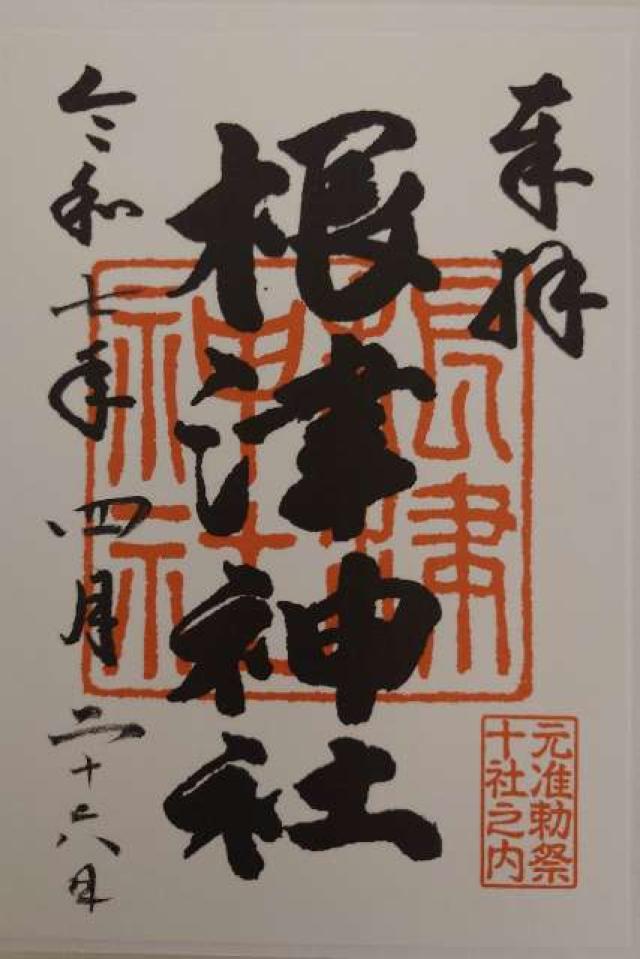 奉拝
根津神社
令和七年四月二十六日
根津神社
元准勅祭
十社之内